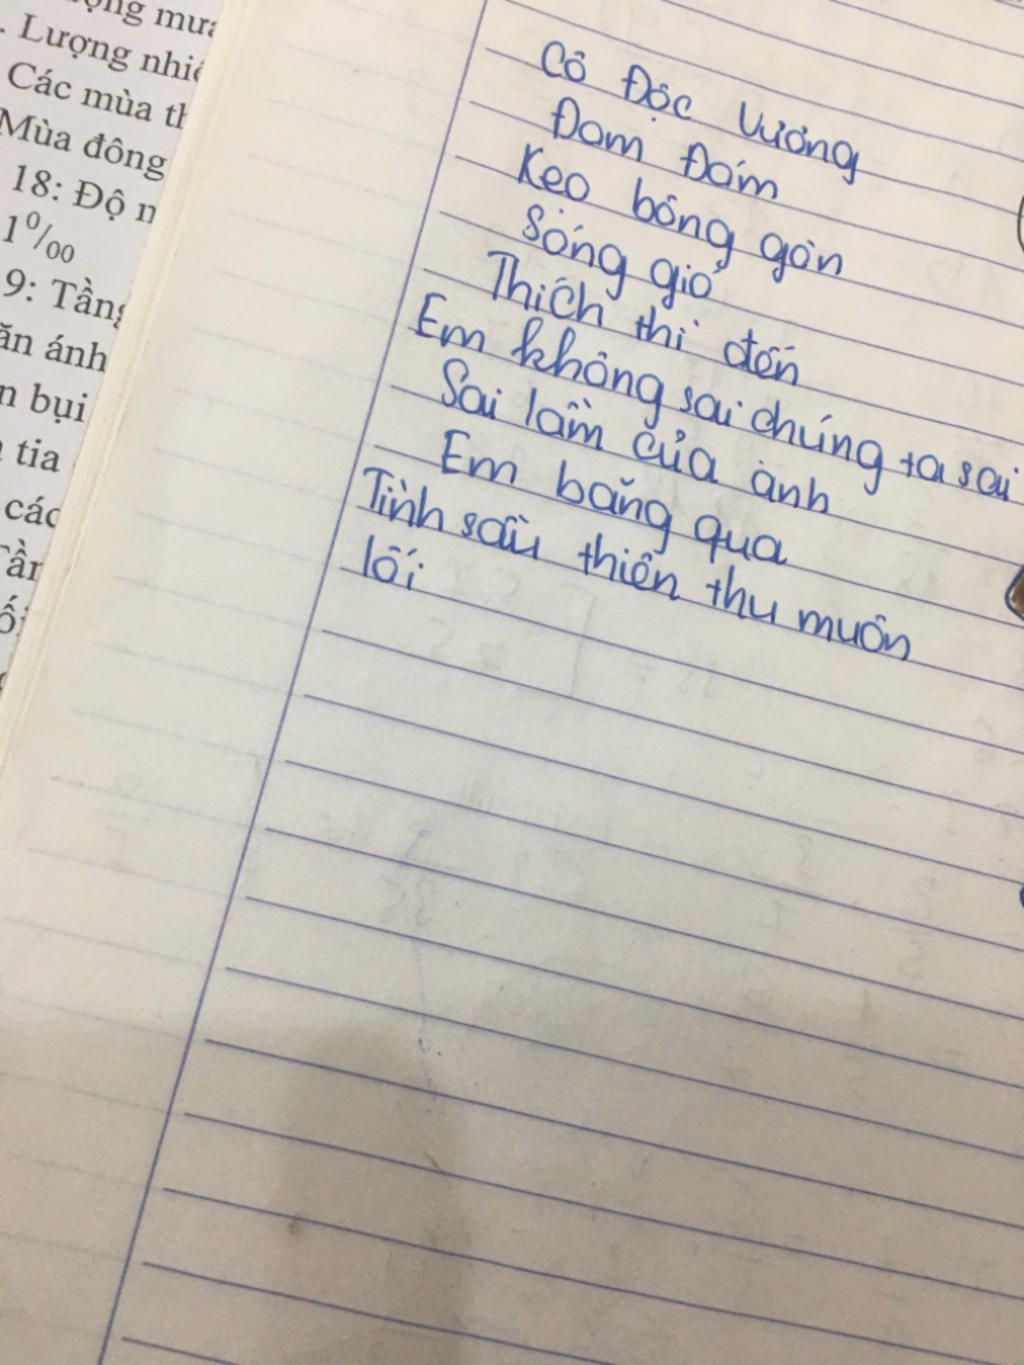 ợng mưa
. Lượng nhiệ
Các mùa th
Mùa đông
18: Độ n
1⁰/₀₀
9: Tầng
ăn ánh
n bụi
tia
các
Tần
ối
Cô Độc Vương
Đom Đóm
Kẹo bông gòn
Sóng gió
Thích thì đến
Em không sai chúng ta sai
Sai lầm của anh
Em băng qua
Tình sầu thiên thu muôn
lối